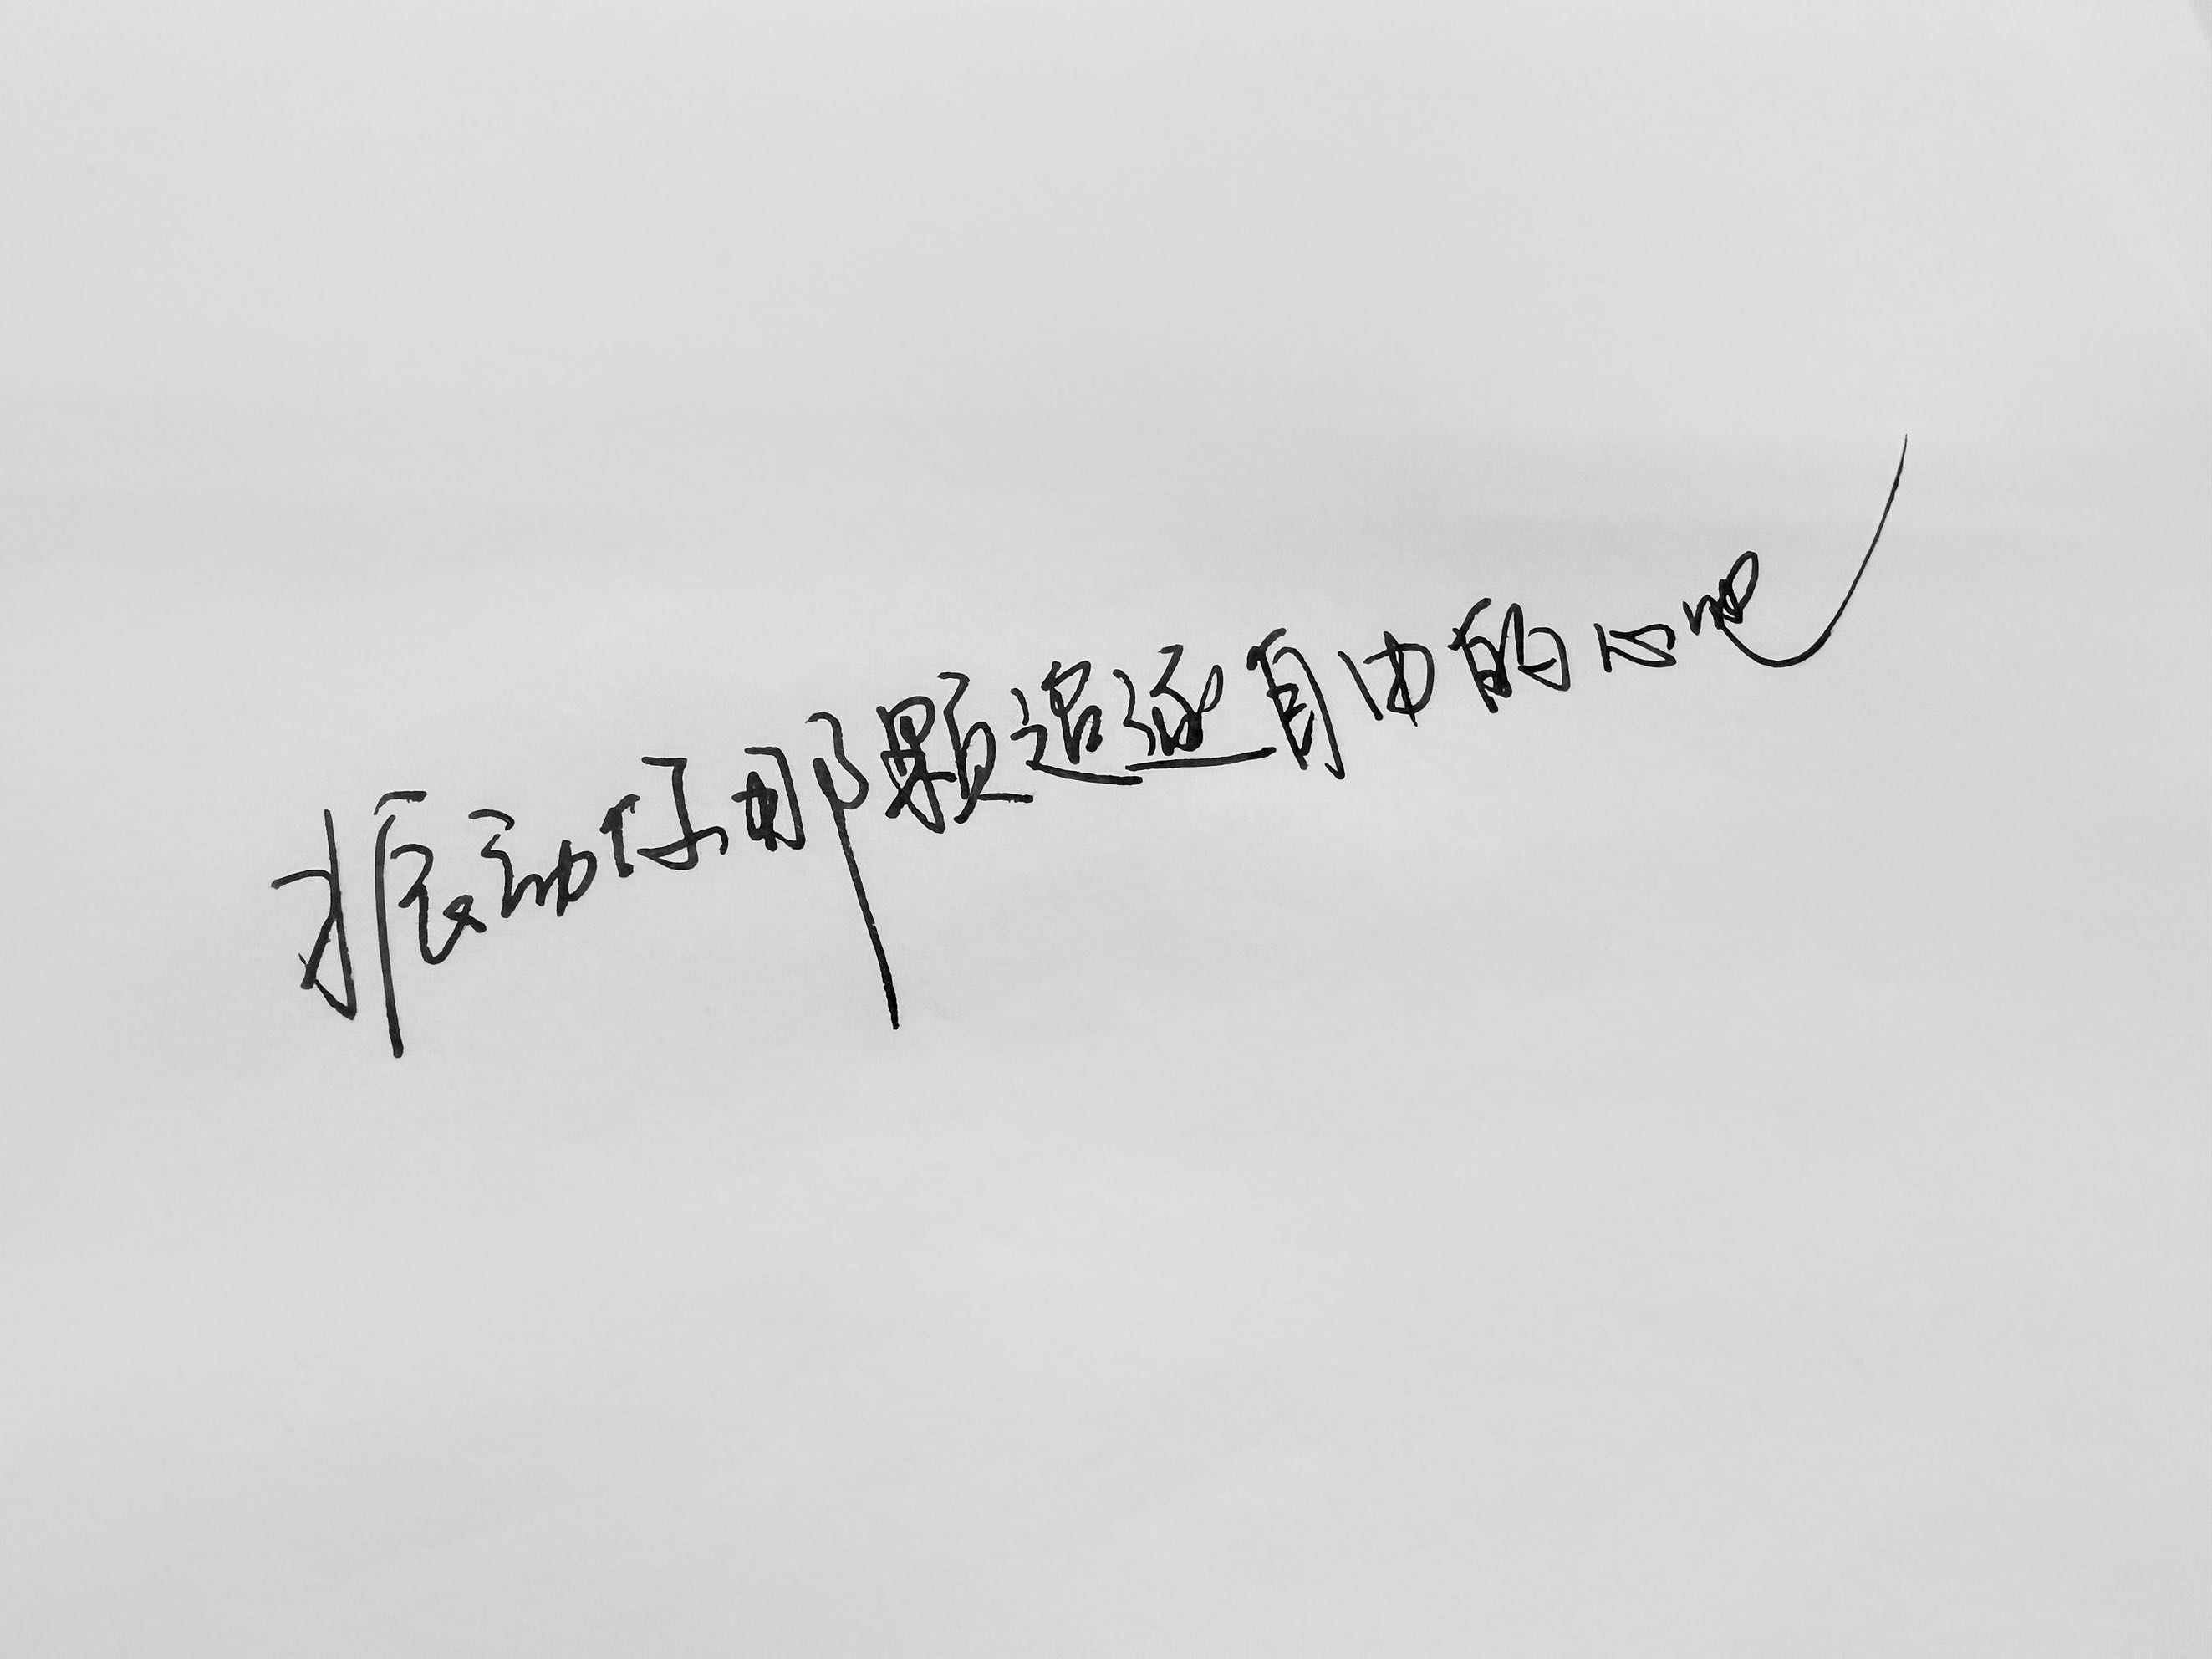 振动你那颗追逐自由的心吧